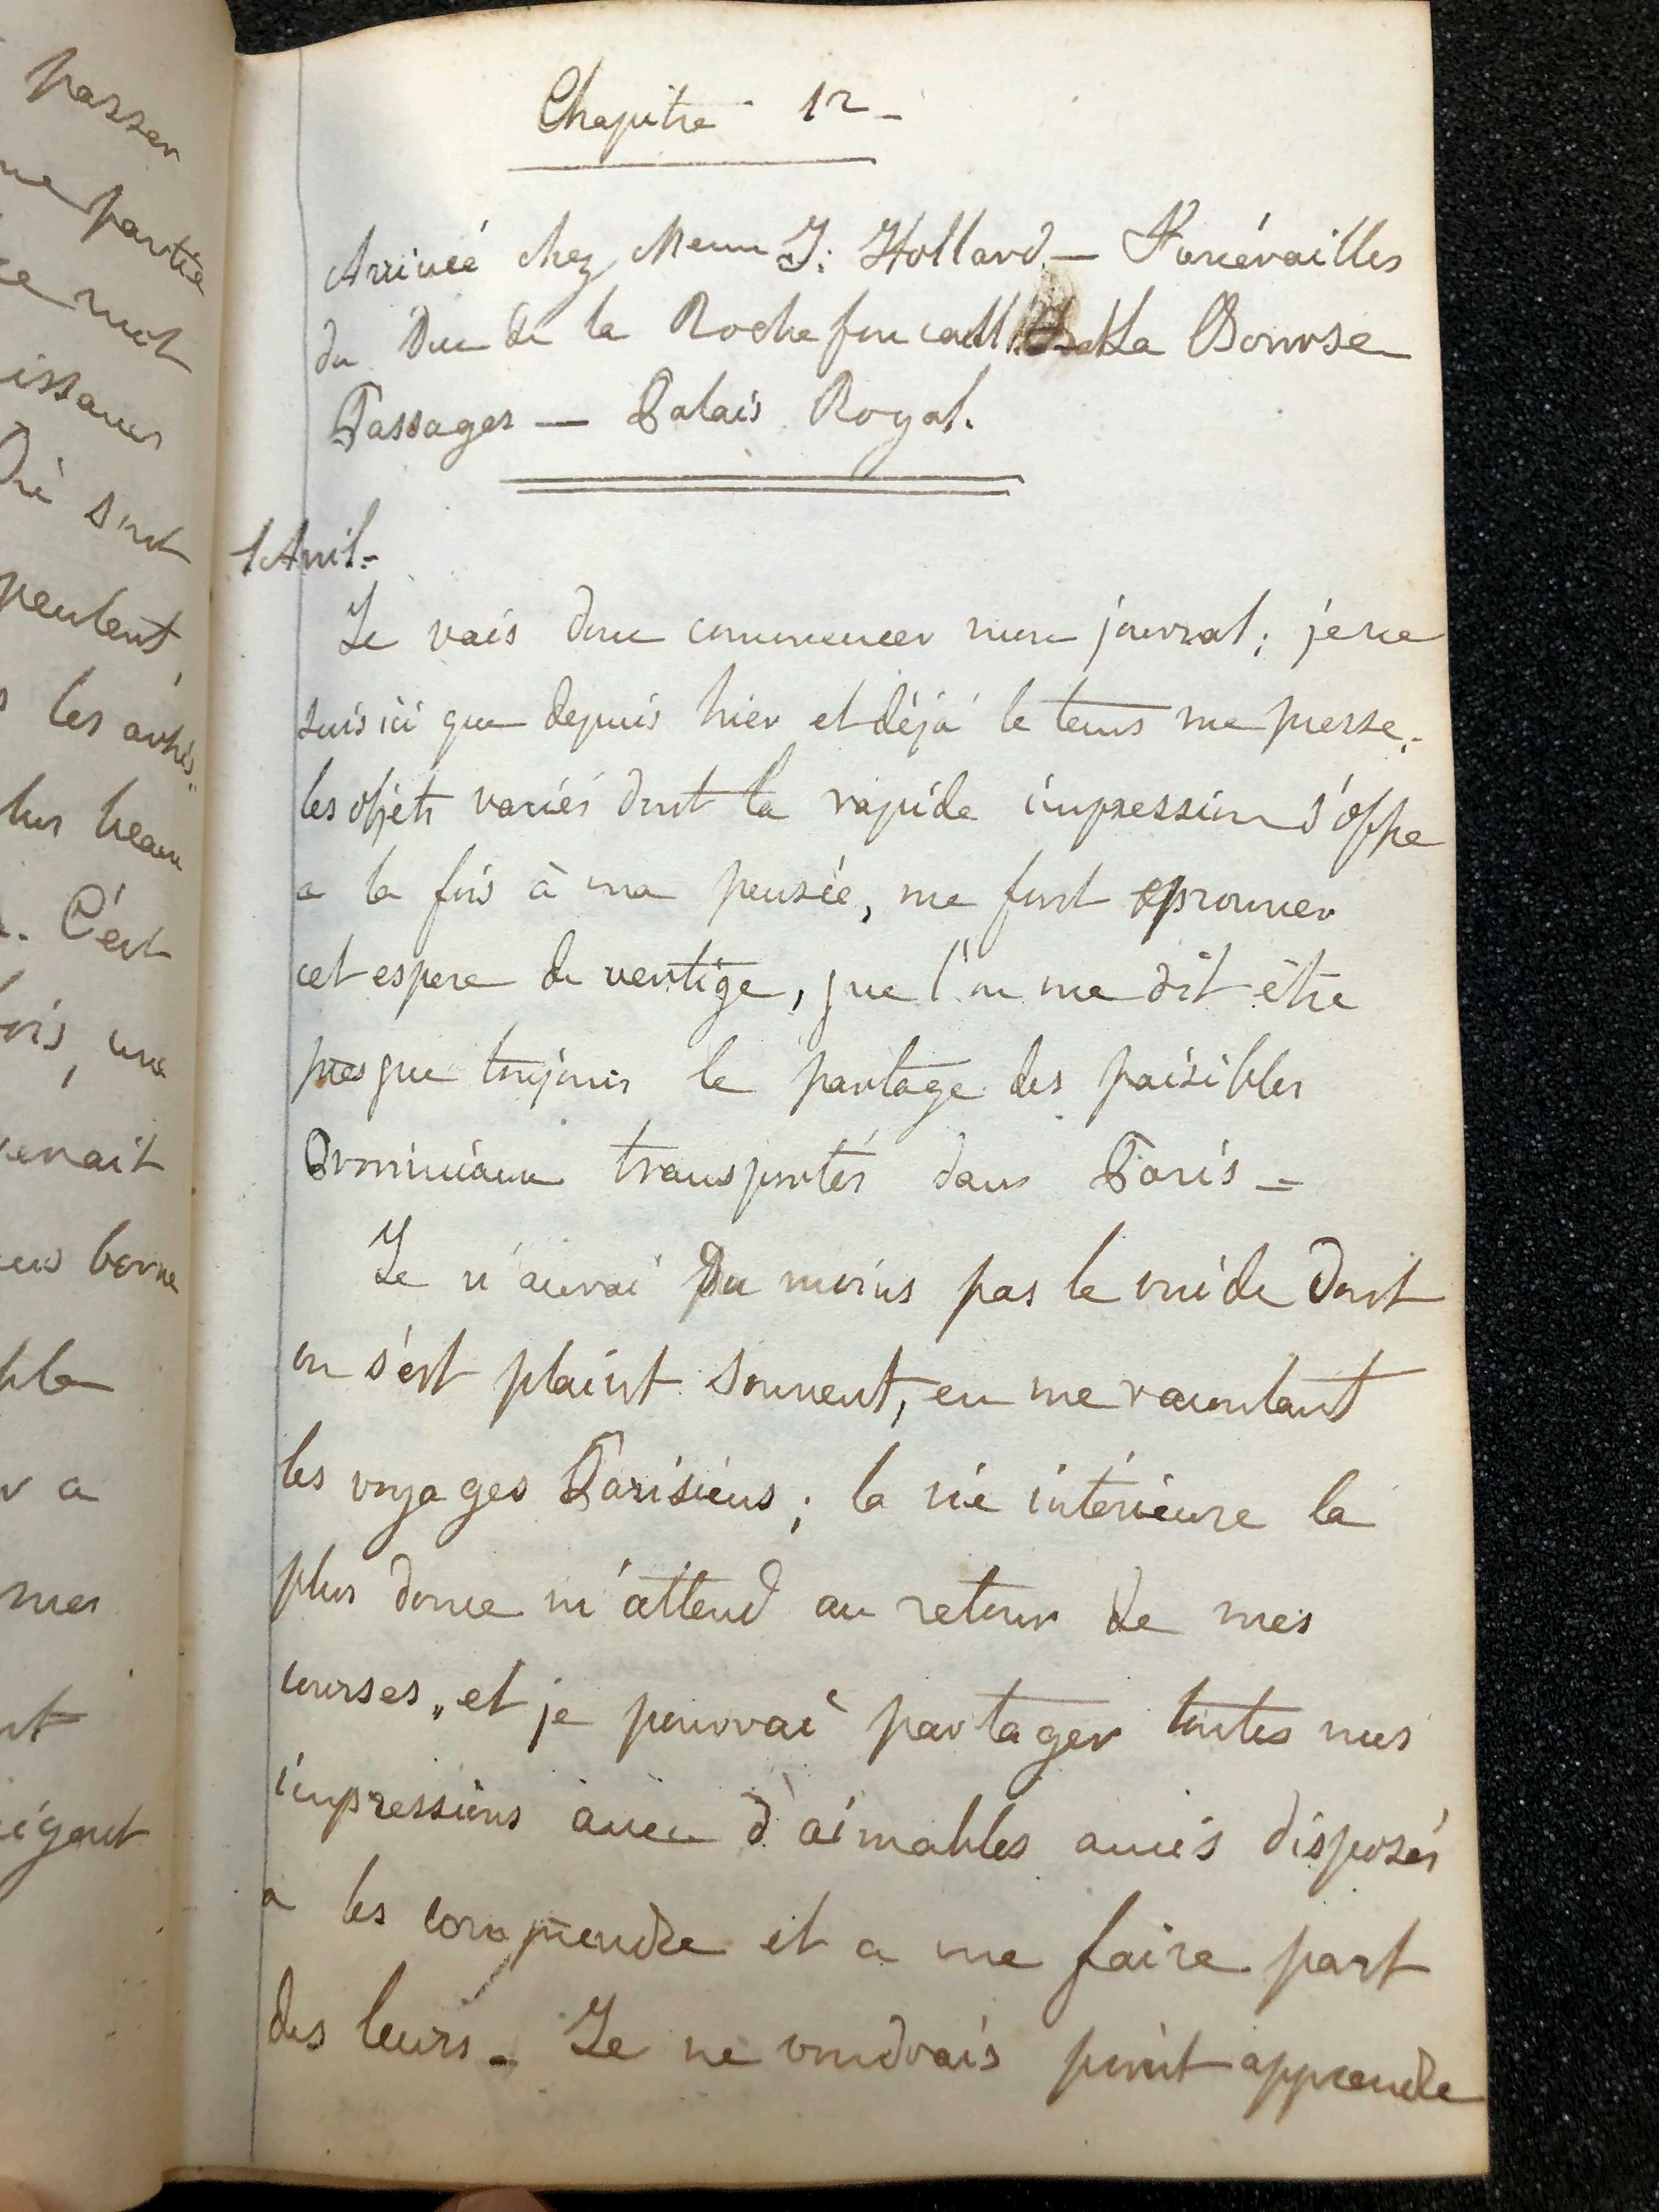 passer
partie
ce mot
sont
peulent,
les arbris"
plus beau
. C'est
fois, une
venait
borne
a
mes
Chapitre 12 -
Arrivée chez Mme J. Hollard - Funérailles
du Duc de la Rochefoucault La Bourse
Passages — Palais Royal.
1 Avril =
Je vais donc commencer mon journal ; je ne
suis ici que depuis hier et déjà le tems me presse ;
les objets variés dont la rapide impression s'offre
a la fois à ma pensée, me font eprouver
cet espece de vertige, que l'on me dit être
presque toujours le partage des paisibles
Provinciaux transportés dans Paris =
Je n'aurai du moins pas le vuide dont
on s'est plaint souvent, en me racontant
les voyages Parisiens ; la vie intérieure la
plus douce m'attend au retour de mes
courses, et je pourrai partager toutes mes
impressions avec d'aimables amis disposés
a les comprendre et a me faire part
des leurs - Je ne voudrais point apprendre